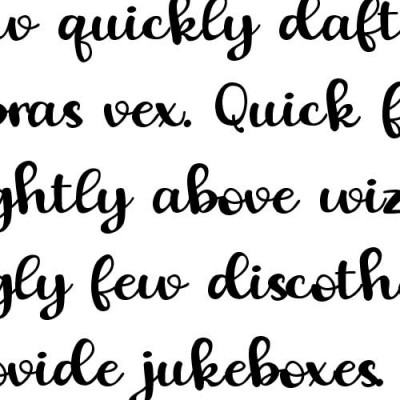 w quickly daft
bras vex. Quick f
ghtly above wiz
gly few discoth
ovide jukeboxes.